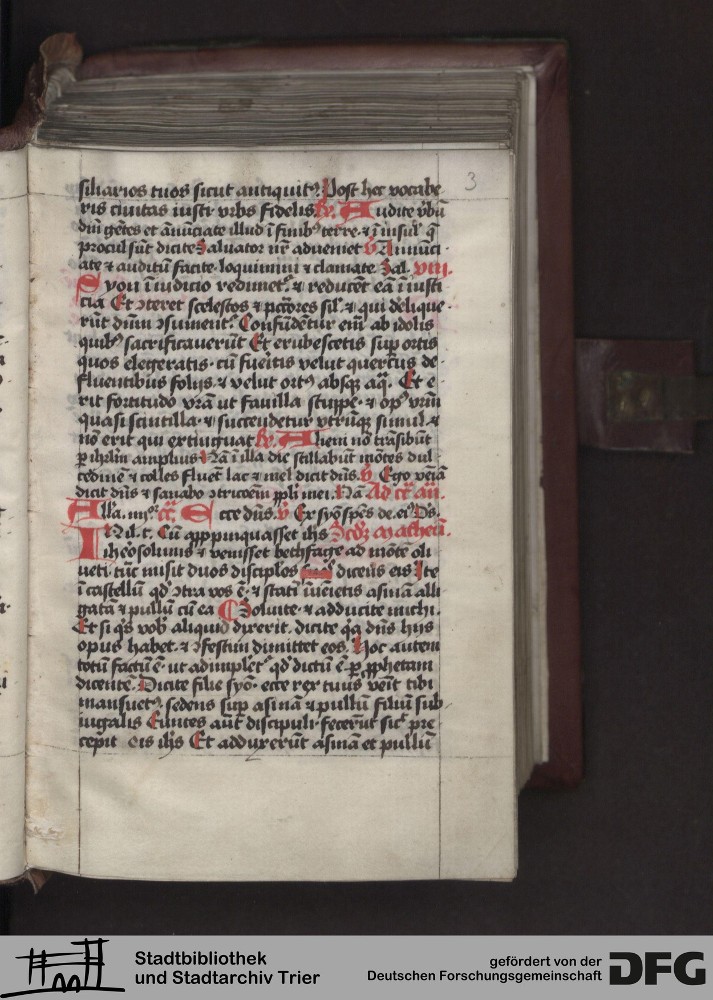 siliarios tuos sicut antiquitꝰ. Post hec vocabe
ris ciuitas iusti vrbs fidelis. R̃. Audite v̾bū
dñi gētes et ānūciate illud ī finibꝰ terre. ⁊ ī insul̾ q̄
procul sūt dicite Saluator nr̄ adueniet V̾ Annunci
ate ⁊ auditū facite. loquimini ⁊ clamate. Sal. VIII.
Syon ī iudicio redimet̾. ⁊ reducēt eā ī iusti
cia Et ꝯteret scelestos ⁊ pc̄cōres sil̾. ⁊ qui delique
rūt dn̄m ꝯsument̾. Confūdētur eni̅ ab idolis
quibꝰ sacrificauerūt Et erubescetis sup ortis
quos elegeratis. cū fueītis velut quercus de
fluentibus folijs. ⁊ velut ortꝰ absqꝫ aq̄. Et e
rit fortitudo vrā ut fauilla stuppe. ⁊ opꝰ vrm̄
quasi scintilla. ⁊ succendetur vtrūqꝫ simul. ⁊
nō erit qui extinguat R̃. Aliem nō trāsibūt
ꝑ ihrl̄m amplius Nā ī illa die stillabūt mōtes dul
cedinē ⁊ colles fluēt lac ⁊ mel dicit dn̄s. V̾ Ego veīā
dicit dn̄s ⁊ sanabo ꝯtricoēm ppl̄i mei. Nā Ad cc̄ an̄.
All̾a. iiijᵒʳ cc̄. Ecce dn̄s. V̾ Ex syō spēs de. eiꝰ Ds.
IN il. t. Cū appropinquasset ihs Scd̄ꝫ Matheū.
iherosolimis ⁊ venisset bethfage ad mōtē oli
ueti. tūc misit duos discip̄les dicens eis Ite
ī castellū qd̾ ꝯtra vos ē. ⁊ statī īueīetis asinā alli
gatā ⁊ pullū cū ea Soluite. ⁊ adducite michi.
Et si qˢ vob̾ aliquid dixerit. dicite qꝛ dn̄s hijs
opus habet. ⁊ ꝯfestim dimittet eos. Hoc autem
totū factū ē. ut adimplet̾ qd̾ dictū ē. ꝑ ꝓphetam
dicentē. Dicite filie syō. ecce rex tuus veīt tibi
mansuetꝰ. sedens sup asinā ⁊ pullū filiū sub
iugalis Eūntes aūt discipuli. fecerūt sic̾ pre
cepit eis ihs Et adduxerūt asinā et pullū
3
Stadtbibliothek
und Stadtarchiv Trier
gefördert von der
Deutschen Forschungsgemeinschaft
DFG